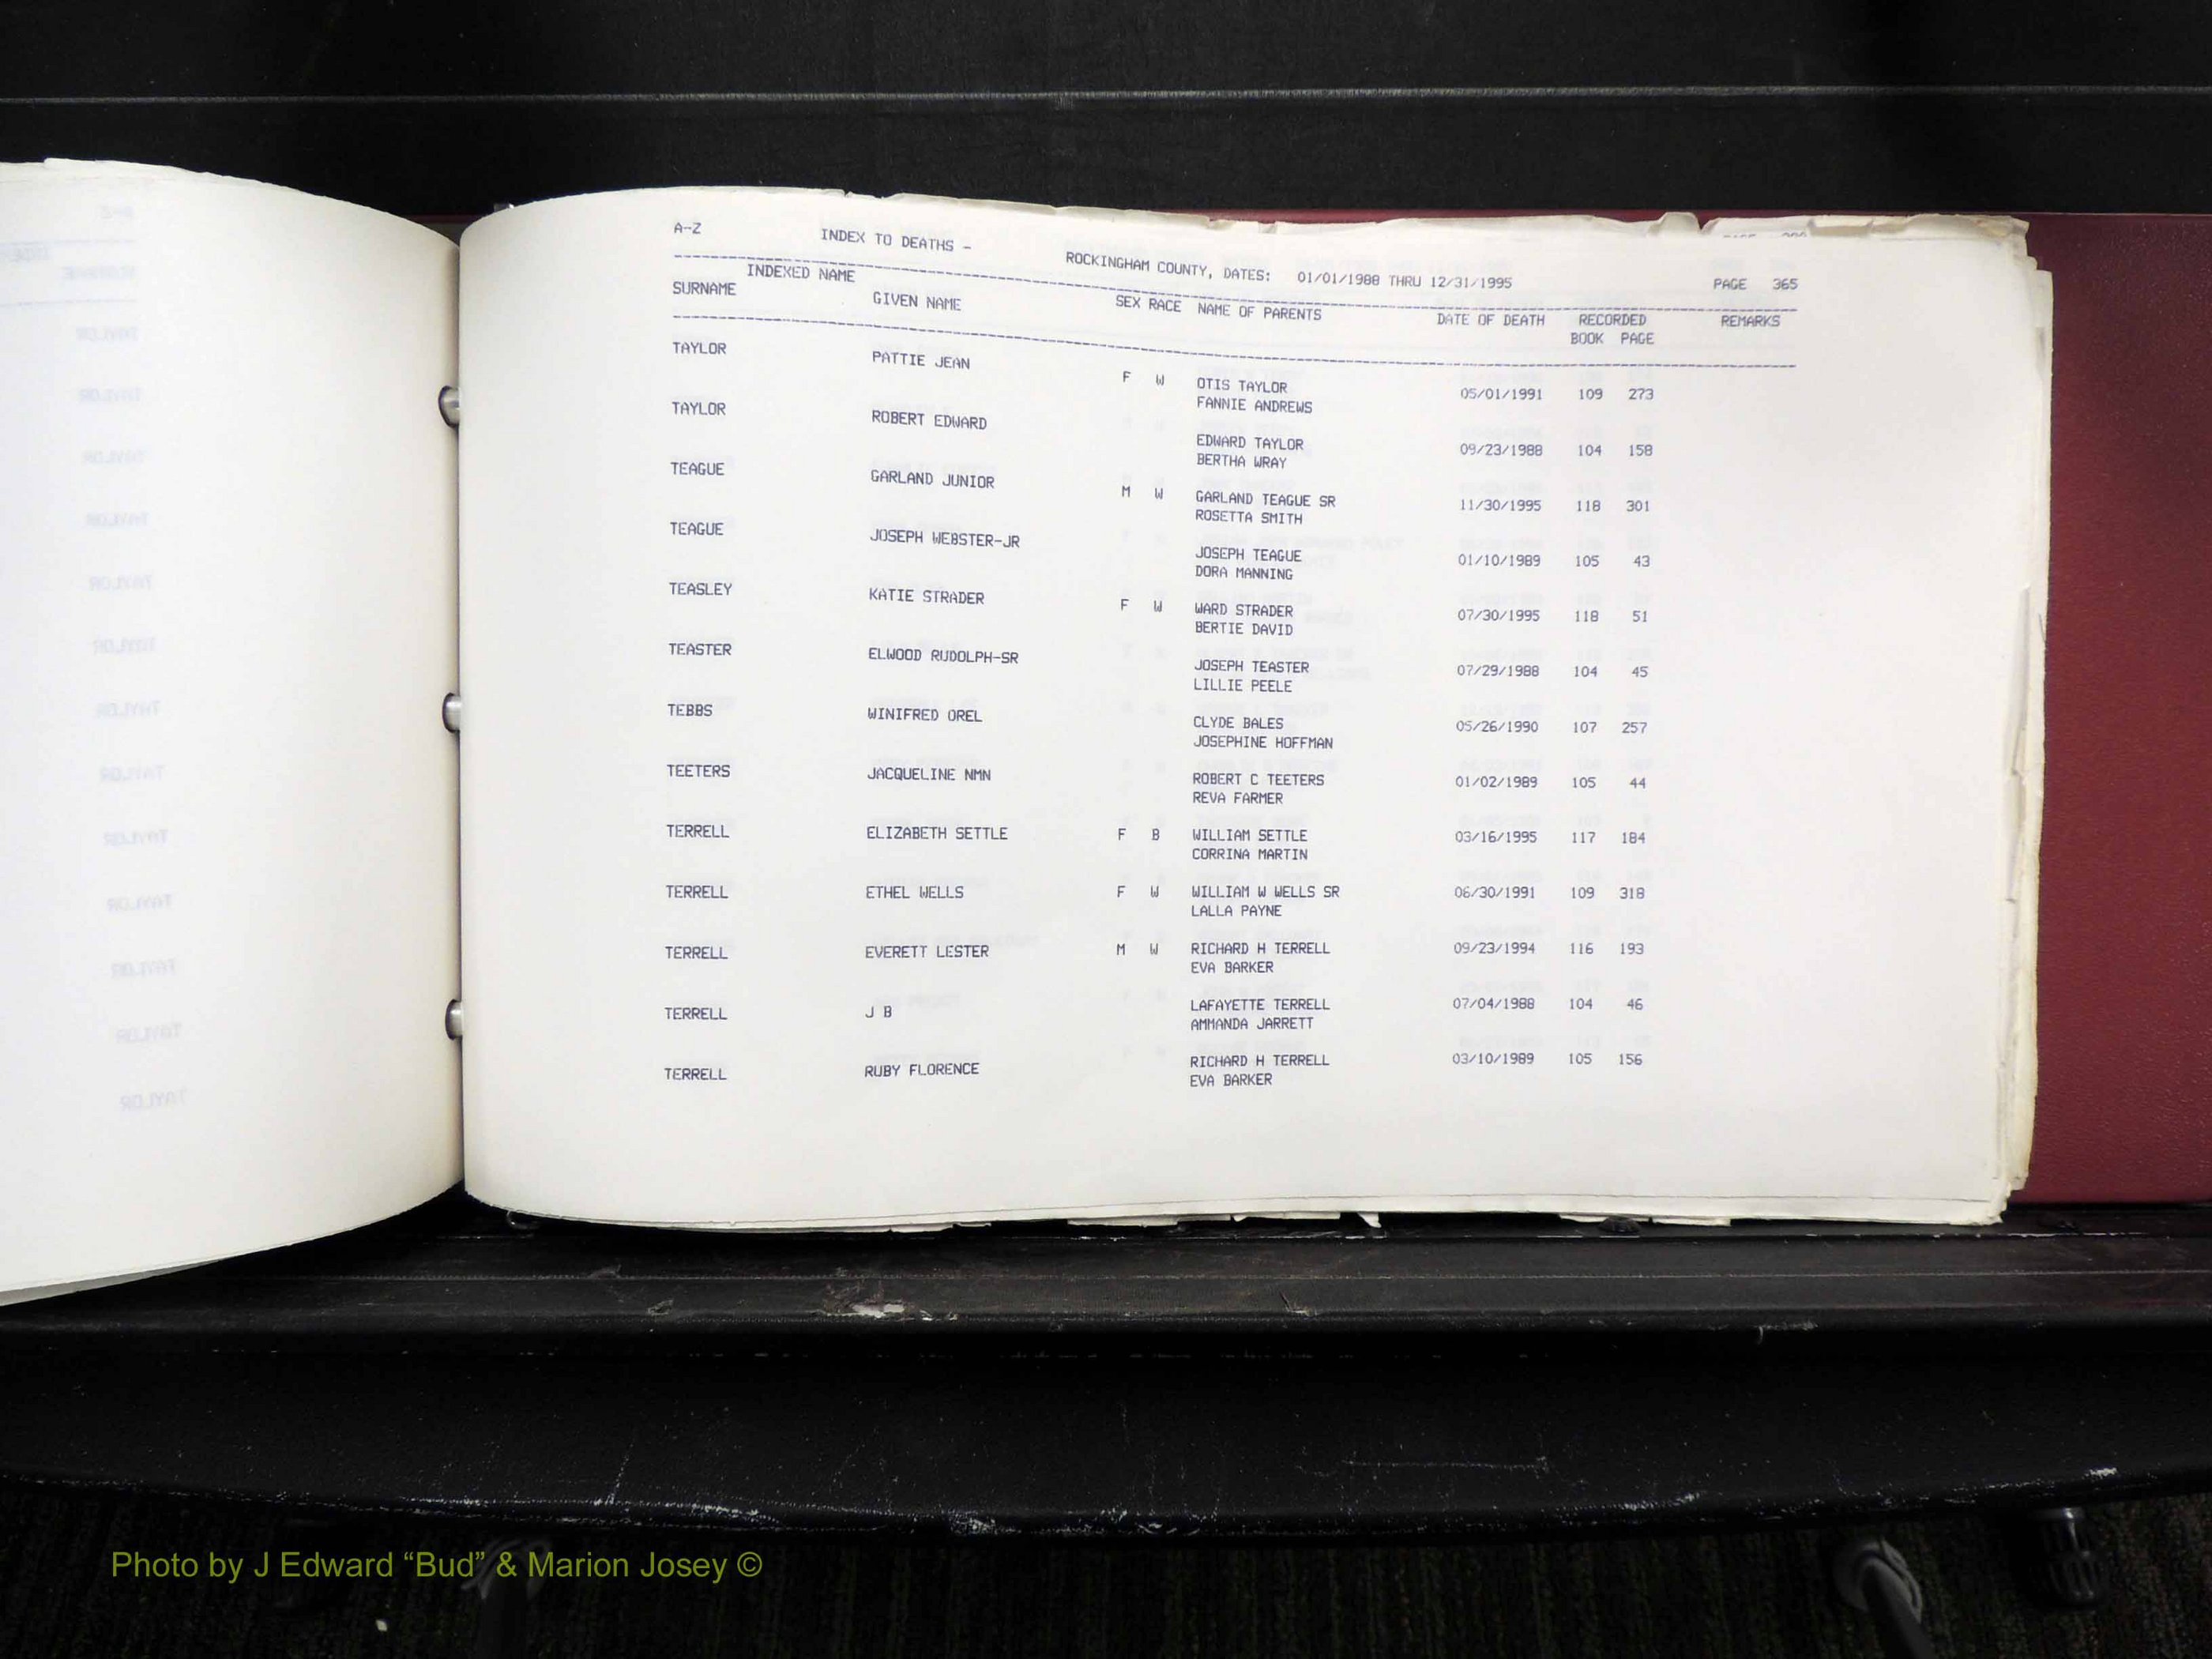 A-Z INDEX TO DEATHS - ROCKINGHAM COUNTY, DATES: 01/01/1988 THRU 12/31/1995 PAGE 365
INDEXED NAME
SURNAME GIVEN NAME SEX RACE NAME OF PARENTS DATE OF DEATH RECORDED REMARKS
BOOK PAGE
TAYLOR PATTIE JEAN F W OTIS TAYLOR 05/01/1991 109 273
FANNIE ANDREWS
TAYLOR ROBERT EDWARD EDWARD TAYLOR 09/23/1988 104 158
BERTHA WRAY
TEAGUE GARLAND JUNIOR M W GARLAND TEAGUE SR 11/30/1995 118 301
ROSETTA SMITH
TEAGUE JOSEPH WEBSTER-JR JOSEPH TEAGUE 01/10/1989 105 43
DORA MANNING
TEASLEY KATIE STRADER F W WARD STRADER 07/30/1995 118 51
BERTIE DAVID
TEASTER ELWOOD RUDOLPH-SR JOSEPH TEASTER 07/29/1988 104 45
LILLIE PEELE
TEBBS WINIFRED OREL CLYDE BALES 05/26/1990 107 257
JOSEPHINE HOFFMAN
TEETERS JACQUELINE NMN ROBERT C TEETERS 01/02/1989 105 44
REVA FARMER
TERRELL ELIZABETH SETTLE F B WILLIAM SETTLE 03/16/1995 117 184
CORRINA MARTIN
TERRELL ETHEL WELLS F W WILLIAM W WELLS SR 06/30/1991 109 318
LALLA PAYNE
TERRELL EVERETT LESTER M W RICHARD H TERRELL 09/23/1994 116 193
EVA BARKER
TERRELL J B LAFAYETTE TERRELL 07/04/1988 104 46
AMMANDA JARRETT
TERRELL RUBY FLORENCE RICHARD H TERRELL 03/10/1989 105 156
EVA BARKER
Photo by J Edward “Bud” & Marion Josey ©